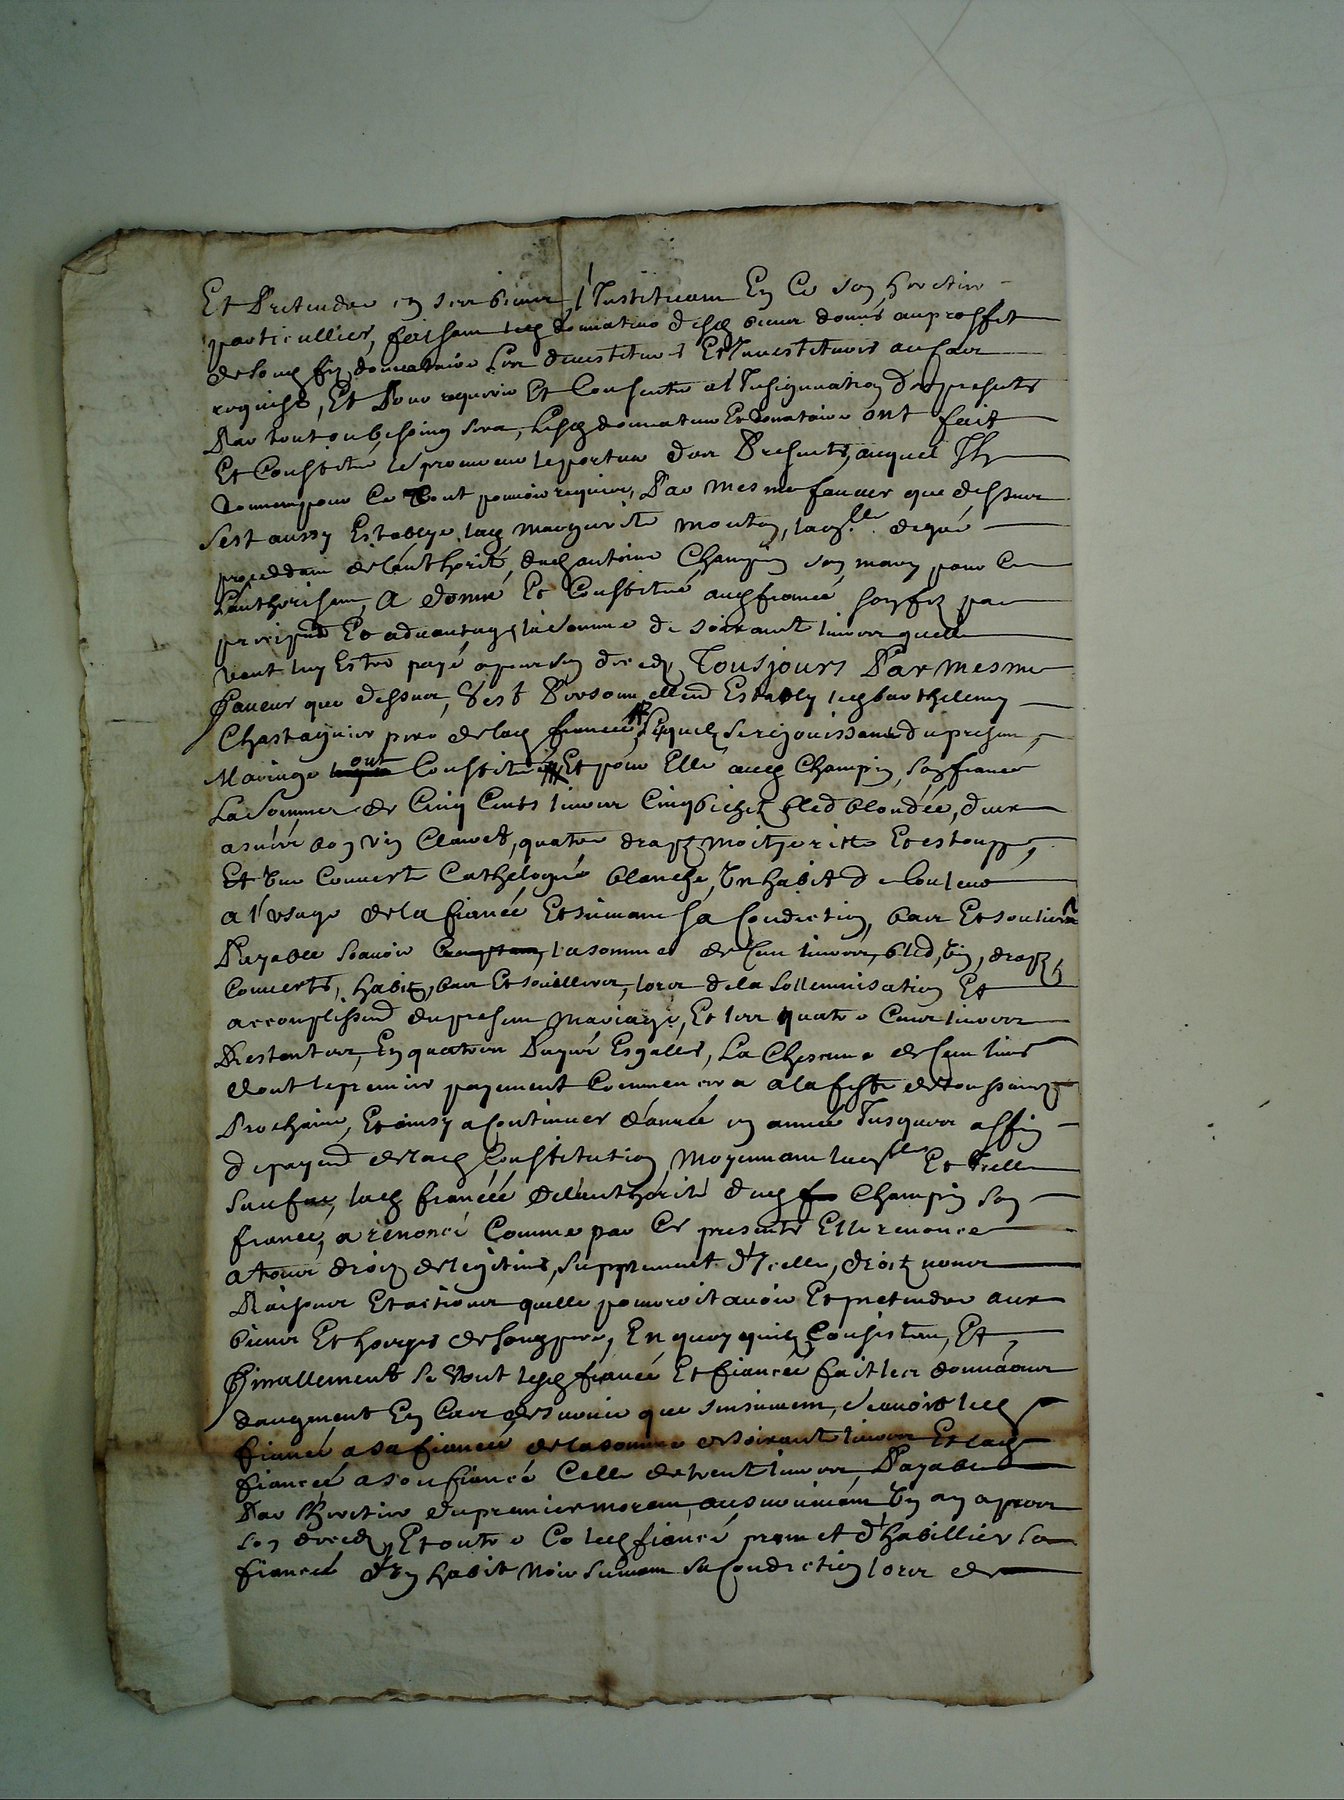 Et Pretendre en ses bieux l'Instituant En Ce son heretier
particullier, faisant led donnateur desd bieux donnés au proffit
de soud fiz donnataire Les devestitures Et Investitures au cas
requises, Et Pour requerir Et Consentir a l'Insignuation des presents
Par tout ou besoing sera, Lesd donnateur Et donnataire ont fait
Et Constitué le procureur le porteur des Presents, auquel Ilz
donnent pour Ce tout pouvoir requis, Par mesme faveur que dessus
s'est aussy Establye lad marguerite mouton, laqlle de gré
proceddant de l'authorité dud antoine Champin son mary pour Ce
l'authorisant, A donné Et Constitué aud fiancé son fiz par
precipud Et advantage la somme de soixante livres quelle
veut luy Estre payé apres son decedz Tousjours Par mesme
faveur que dessus, s'est Personnellemd Estably led barthelemy
Chastagnier pere de lad fiancée, Lequelz se rejouissant du present
Mariage ont Constitué Et pour Elle aud Champin, son fiancé
La somme de Cinq Cents livres Cinq bichetz bled blondée, deux
asnées bon vin Clairet, quatre drapz moitye ritte Et estoupp,
Et Une Couverte Cathelogne blanche, Un habit de Couleur
a l'usage de la fiancée Et suivant sa Condiction, bas Et souliers
Payable scavoir la somme de Cent livres, bled, vin, drapz
Couverte, habitz, bas Et souilliers, lors de la sollemnisation Et
accomplissemd du present mariage, Et les quatre Cent livres
Restantes, En quatre Payes Esgalles, La Chescune de Cent livres
dont le premier payement Commencera a la feste de toussaincts
Prochaine, Et ainsy a Continuer d'année en année Jusques affin
de payemd de lad Constitution, Moyennant laqlle Et Icelle
sauf, lad fiancée de l'authorité dud Champin son
fiancé, a renoncé Comme par Ces presents Elle renonce
a tous droitz de legitime, supplement d'Icelle, droitz noms
Raisons Et actions quelle pourroit avoir Et pretendre aux
bieux Et hoirye de soud pere, En quoy quilz Consistent, Et
finallement se sont lesd fiancé Et fiancée fait les donnaons
d'augment En Cas de survie que s'ensuivent, scavoir led
fiancé a sa fiancée de la somme de soixante livres Et lad
fiancée a son fiancé Celle de trente livres, Payable
Par l'heretier du premier morant, au survivant Un an apres
son decedz, Et outre Ce led fiancé promet d'habillier sa
fiancée d'Un habit Noir suivant sa Condiction lors de